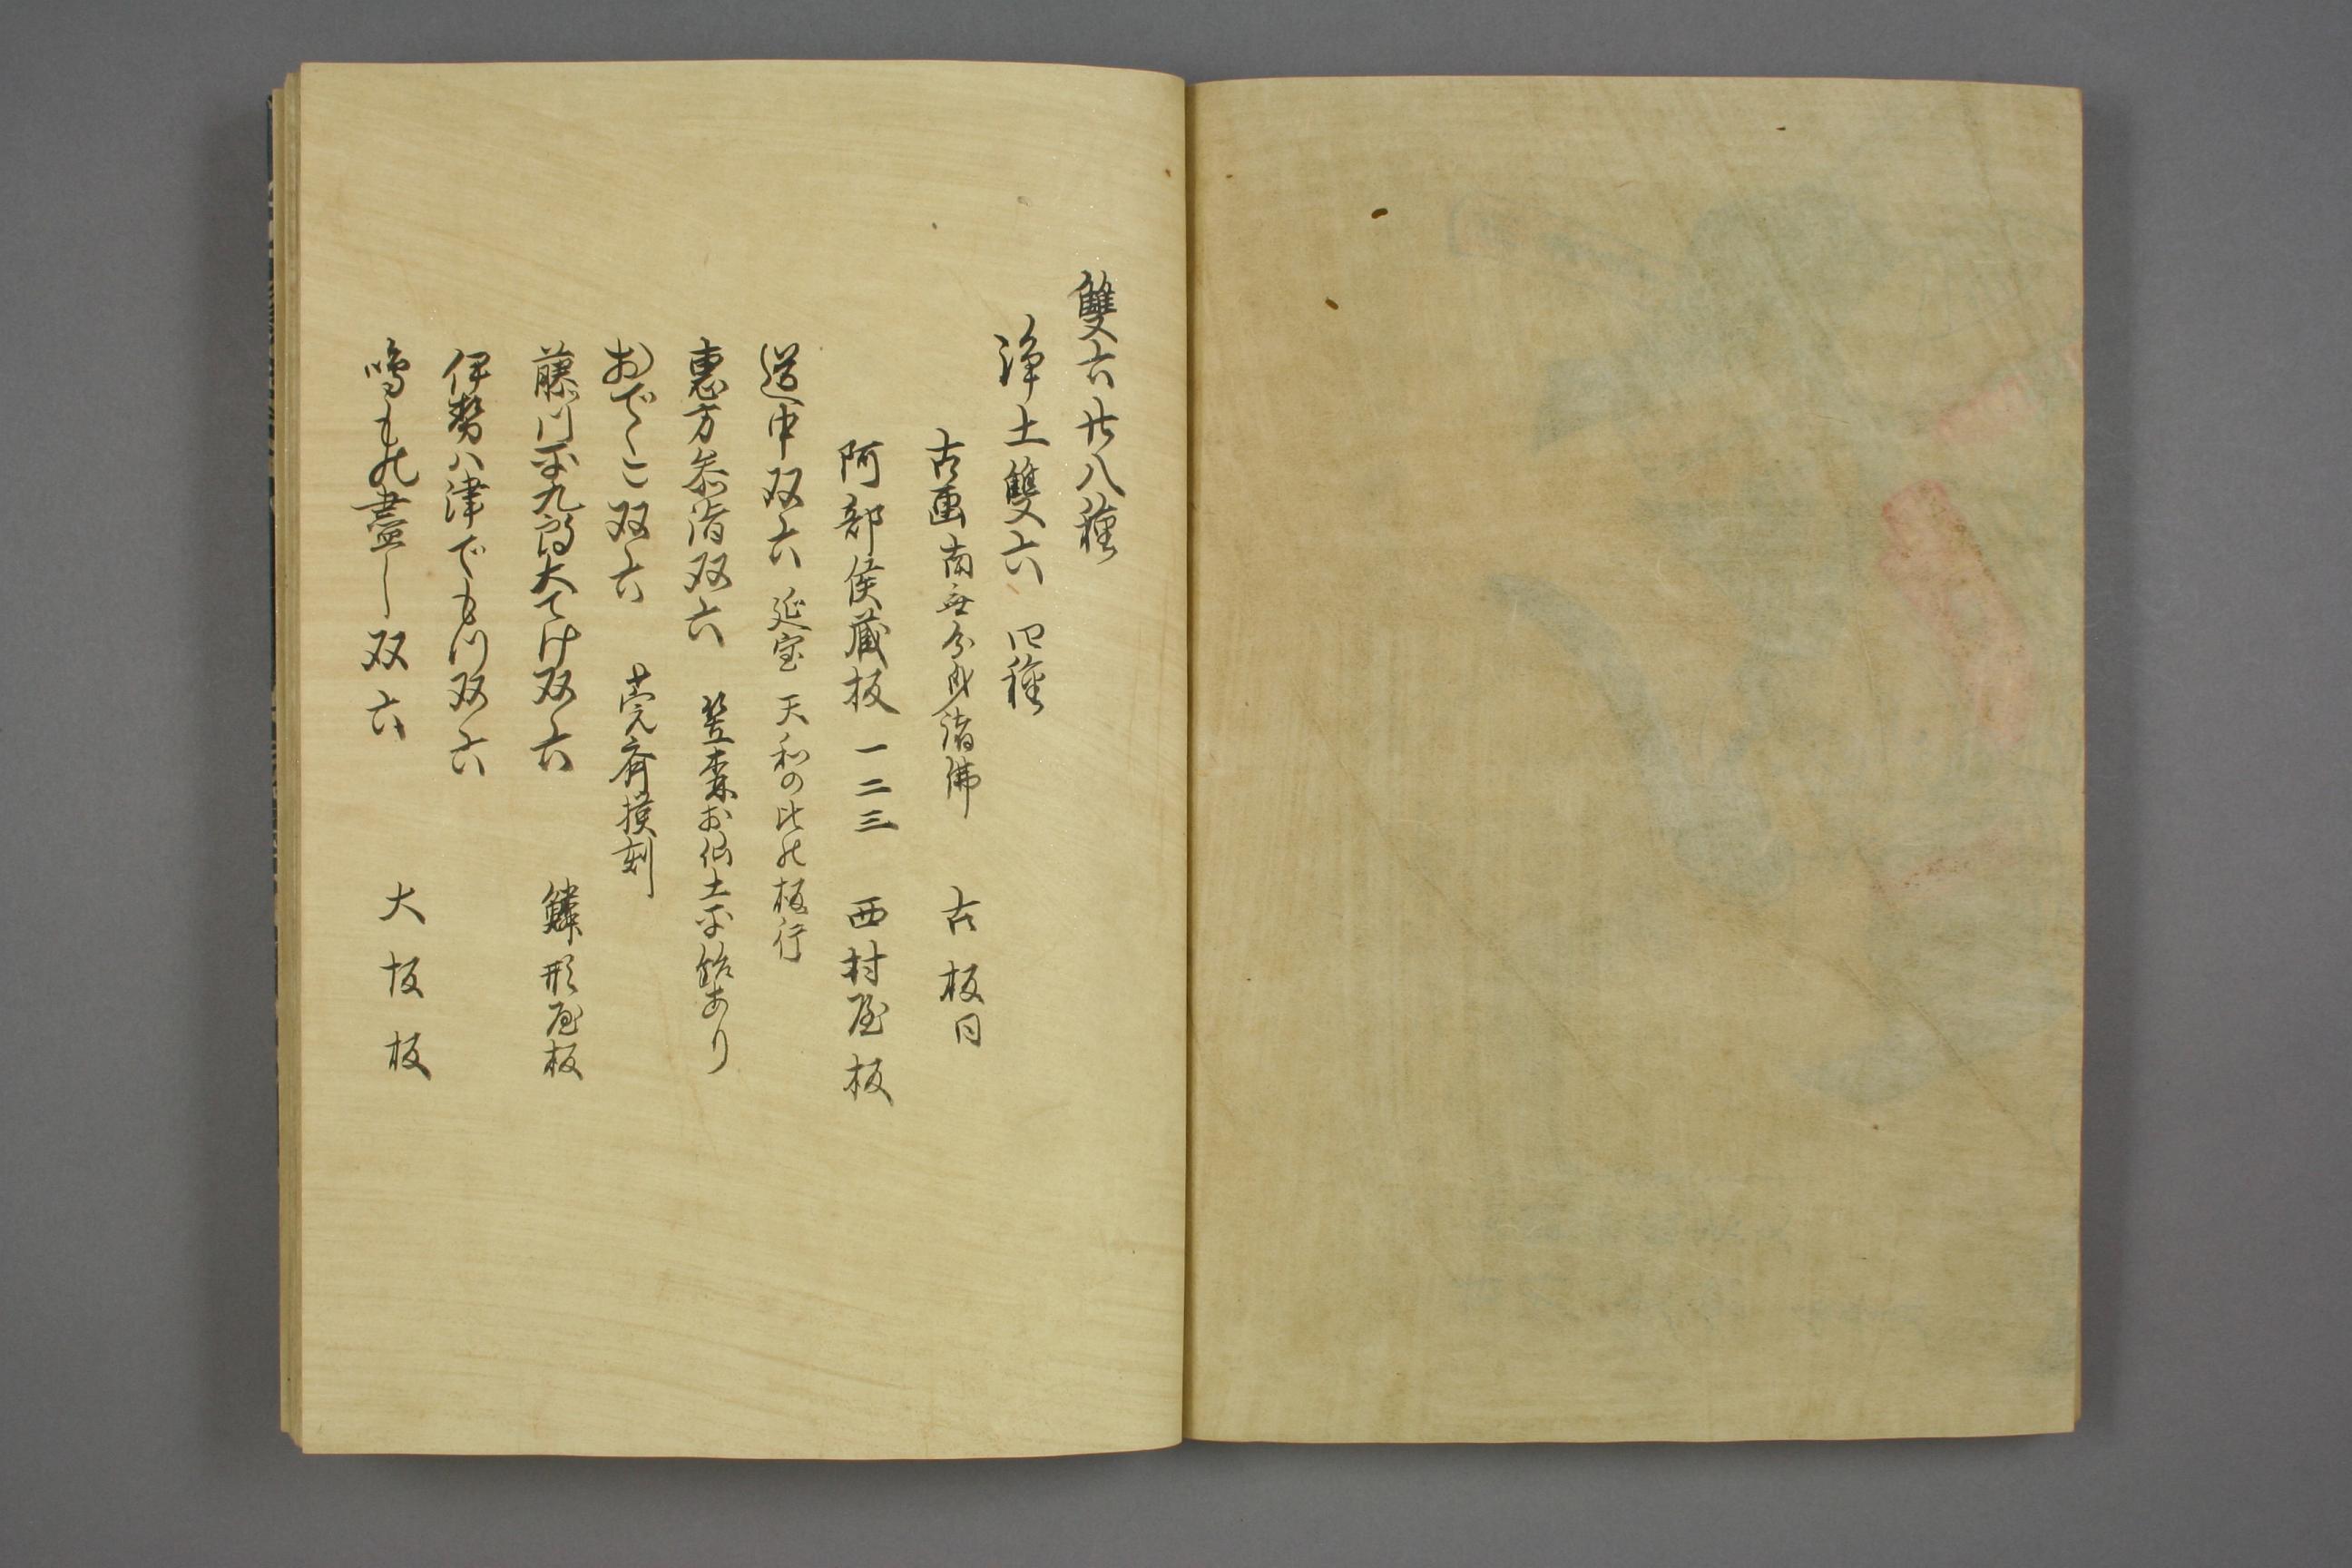 雙六廿八種
浄土雙六 四種
古画南無分身諸佛 古板目
阿部侯蔵板 一二三 西村屋板
道中双六 延宝天和の比の板行
恵方参詣双六 笠森お仙土平飴あり
おでゝこ双六 莞斎摸刻
藤川平九郎大てけ双六 鱗形屋板
伊勢ハ津でもつ双六
鳴もの盡し双六 大坂板